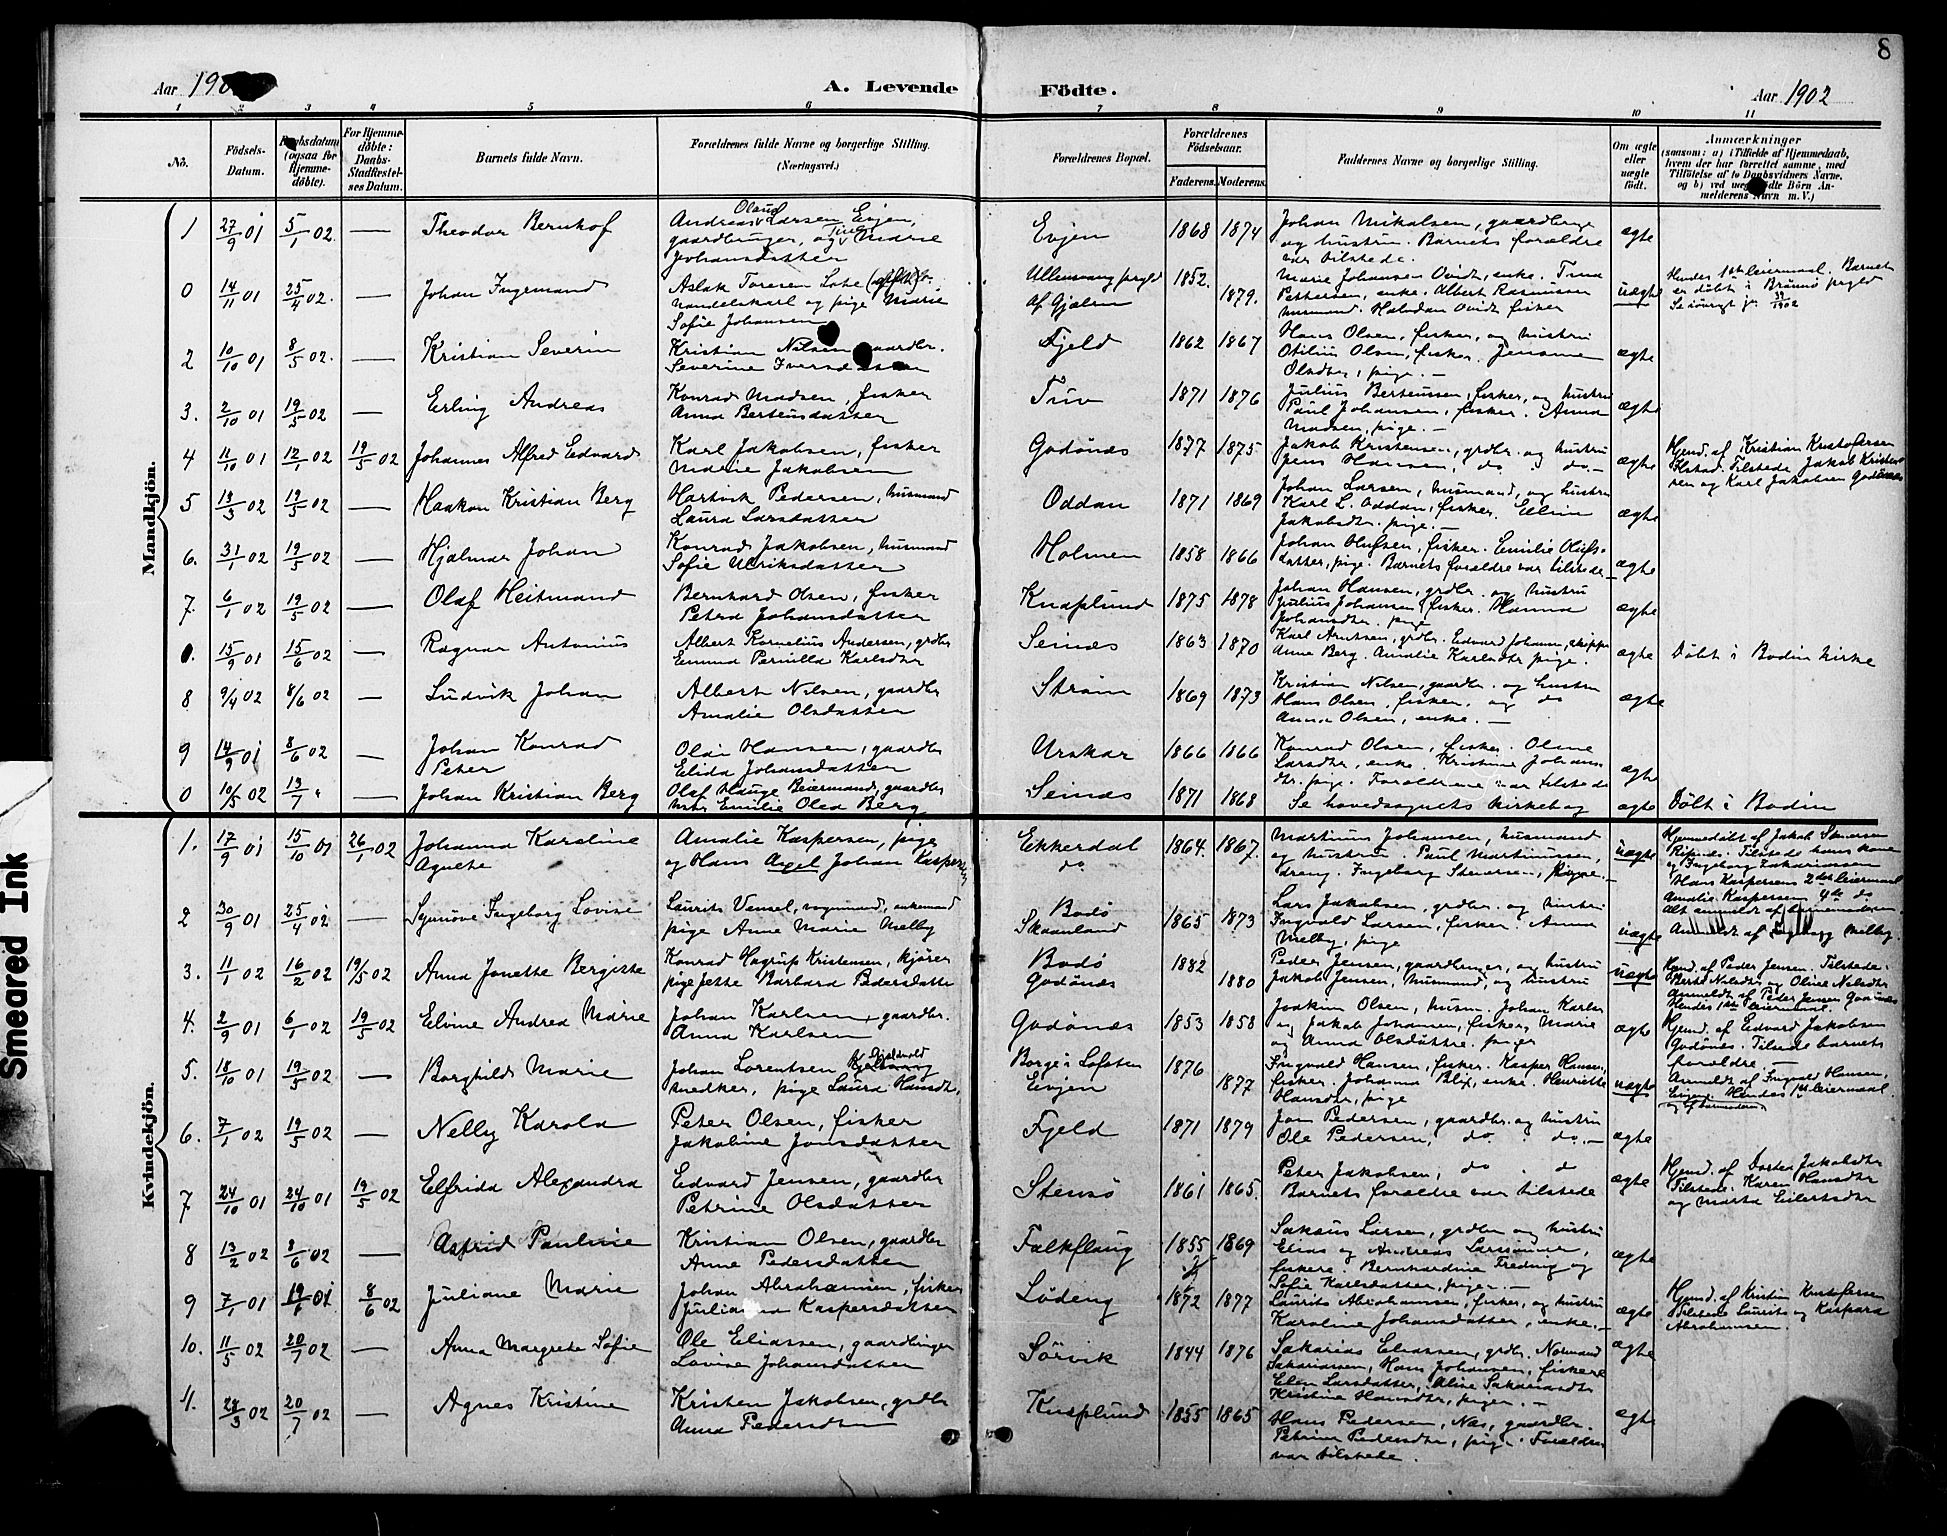 8
Aar 190
A. Levende Födte.
Aar 1902
1 2 3 4 5 6 7 8 9 10 11
Nô.
Födsels-
Datum.
Daabsdatum
(ogsaa for
Hjemme-
döbte).
For Hjemme-
döbte:
Daabs-
Stadfæstel-
ses Datum.
Barnets fulde Navn.
Forældrenes fulde Navne og borgerlige Stilling.
(Næringsvei.)
Forældrenes Bopæl.
Forældrenes
Födselsaar.
Faderens. Moderens.
Faddernes Navne og borgerlige Stilling.
Om ægte
eller
uægte
födt.
Anmærkninger
(saasom: a) i Tilfælde af Hjemmedaab,
hvem der har forrettet samme, med
Tilföielse af to Daabsvidners Navne.
og b) ved uægte födte Börn An-
melderens Navn m. V.)
Mandkjön.
1 27/9 01 5/1 02 — Theodor Bernhof
Andreas Olaus Larsen Evjen,
gaardbruger, og Tine Marie
Johansdatter
Evjen 1868 1874
Johan Nikolsen, gaardbruger
og hustru. Barnets forældre
var tilstede.
ægte
0 14/11 01 25/4 02. — Johan Ingemand
Aslak Toresen Lote
handelskarl og pige Marie
Sofie Johansen
Ullensvang prgld
Af Gjælen
1852.
1879.
Marie Johansen Qvidt, enke. Tina
Pettersen, enke. Albert Rasmussen
husmand. Halvdan Qvidt fisker
uægte
Hendes 1ste leiermaal. Barnet
er döbt i Brönnö prgld
2 10/10 01 8/5 02. — Kristian Severin
Kristian Nilsen gaardbr.
Severine Iversdatter
Fjeld 1862 1867
Hans Olsen, fisker, og hustru
Otilius Olsen, fisker. Jensine
Olsdtr, pige. —
ægte
3. 2/10 01 19/5 02 — Erling Andreas
Konrad Madsen, fisker
Anna Berteusdatter
Tuv 1871 1876
Julius Berteussen, fisker, og hustru
Paul Johansen, fisker. Anna
Madsen, pige. —
ægte
4 11/10 01 12/1 02 19/5 02 Johannes Alfred Edvard
Karl Jakobsen, fisker
Marie Jakobsen
Godönes 1877 1875
Jakob Kristensen, grdbr. og hustru
Jens Hansen, do do. —
ægte
Hjmd. af Kristian Kristofersen
Ilstad. Tilstede Jakob Kristen-
sen og Karl Jakobsen Godönes
5 13/3 02 19/5 02 — Haakon Kristian Berg
Hartvik Pedersen, husmand
Laura Larsdatter
Oddan 1871 1869
Johan Larsen, husmand, og hustru
Karl L. Oddan, fisker. Eline
Jakobsdtr. pige. —
ægte
6. 31/1 02 19/5 02 — Hjalmar Johan
Konrad Jakobsen, husmand
Sofie Ulriksdatter
Holmen 1858 1866
Johan Olufsen, fisker. Emilie Olufs-
datter, pige. Barnets forældre var tilstede
ægte
7. 6/1 02 19/5 02 — Olaf Heitmand
Bernhard Olsen, fisker
Petra Johansdatter
Knaplund 1875 1878
Johan Hansen, grdbr. og hustru
Julius Johansen, fisker. Hanna
Johansdtr. pige
ægte
0. 15/9 01 15/6 02 — Ragnar Antonius
Albert Kornelius Andersen, grdbr
Emma Pernilla Karlsdtr
Seines 1863 1870
Karl Arntsen, grdbr. Edvard Johansen, skipper
Anne Berg. Amalie Karlsdtr pige.
ægte
Döbt i Bodin kirke
8 9/4 02 8/6 02 — Ludvik Johan
Albert Nilsen, gaardbr
Amalie Olsdatter
Ström 1869 1873
Kristian Nilsen, gaardbr. og hustru
Hans Olsen, fisker, og do
Anna Olsen, enke. —
ægte
9 14/9 01 8/6 02 — Johan Konrad
Peter
Olai Hansen, gaardbr
Elida Johansdatter
Urskar 1866 1866
Konrad Olsen, fisker. Oline
Larsdtr, enke. Kristine Johans
dtr. pige. Forældrene var tilstede
ægte
0 10/5 02 13/7 " — Johan Kristian Berg
Olaf Hauge Beiermand, gaardbr
Emilie Olea Berg
Seines 1871 1868
Se hovedsognets kirkebog
ægte
Döbt i Bodin
Kvindekjön.
1. 17/9 01 15/10 01 26/1 02 Johanna Karoline
Agnete
Amalie Kaspersen, pige
og Hans Axel Johan Kaspersen
Ekkerdal
do
1864. 1867.
Martinus Johansen, husmand
og hustru. Paul Martinussen,
dreng. Ingeborg Stenersen, pige. —
uægte
Hjemmedöbt af Jakob Stenersen
Ripnes. Tilstede hans kone
og Ingeborg Zakariassen
Hans Kaspersens 2det leiermaal
Amalie Kaspersen 4de do
Alt anmeldt af barnemoderen.
2 30/9 01 25/4 02 — Synnöve Ingeborg Lovise
Laurits Vensel, vognmand, enkemand
pige Anne Marie Melby
Bodö
Skaanland
1865 1873
Lars Jakobsen, grdbr. og hustru
Ingvald Larsen, fisker. Anna
Melby, pige
uægte
Anmeldt af Ingeborg Melby.
3. 11/1 02 16/2 02 19/5 02 Anna Jonette Bergitte
Konrad Hagrup Kristensen, kjörer
pige Jette Barbara Pedersdatter
Bodö
Godönes
1882
1880
Peder Jensen, gaardbruger, og hustru
Jakob Jensen, husmand, og hustru
uægte
Hjmd. af Peder Jensen. Tilstede:
Berit Nilsdtr og Oline Nilsdtr
Anmeldt af Peder Jensen Godönes
Hendes 1ste leiermaal.
4. 2/9 01 6/1 02 19/5 02 Elvine Andrea Marie
Johan Karlsen, gaardbr.
Anna Karlsen
Godönes 1853 1858
Joakim Olsen, husm. Johan Karlsen
og Jakob Johansen, fiskere, Marie
og Anna Olsdöttre. piger
ægte
Hjmd. af Edvard Jakobsen
Godönes. Tilstede barnets
forældre.
5. 18/10 01 19/5 02 — Borghild Marie
Johan Lorentsen Gjeldvold
snedker, pige Laura Hansdtr.
Borge i Lofoten
Evjen
1876
1877
Ingvald Hansen, fisker. Kasper Hansen,
fisker. Johanna Blix, enke. Henriette
Hansdtr, pige
uægte
Anmeldt af Ingvald Hansen,
Evjen. Hendes 1st leiermaal.
og af barnemoderen
6. 7/1 02 19/5 02 — Nelly Karola
Peter Olsen, fisker
Jakobine Jonsdatter
Fjeld 1871 1879
Jon Pedersen, gaardbr. og hustru
Ole Pedersen, do . do. —
ægte
7 24/10 01 24/10 01 19/5 02 Elfrida Alexandra
Edvard Jensen, gaardbr
Petrine Olsdatter
Stensö 1861 1865.
Peter Jakobsen, do . d
Barnets forældre var tilstede
ægte
Hjmd. af Dortea Jakobsdtr
Tilstede: Karen Hansdtr
og Marta Eilertsdtr
8 13/2 02 8/6 02 — Astrid Pauline
Kristian Olsen, gaardbr
Anne Pedersdatter
Falkflaug 1855 1869
Sakaus Larsen, grdbr og hustru
Elias og Andreas Larssönner,
fiskere. Bernhardine Freding og
Sofie Karlsdatter, piger. —
ægte
9 7/1 01 19/1 01 8/6 02 Juliane Marie
Johan Abrahamsen, fisker
Juliana Kaspersdatter
Löding 1872 1877
Laurits Abrahamsen, fisker, og hustru
Karoline Johansdatter, enke. —
ægte
Hjmd. af Kristin Kristofersen
Tilstede Laurits og Kaspara
Abrahamsen.
10. 11/5 02 20/7 02 — Anna Margrete Sofie
Ole Eliassen, gaardbruger
Lovise Johansdatter
Sörvik 1844 1876
Sakarias Eliassen, grdbr. Normand
Sakariassen, Hans Johansen, fiskere
Elen Larsdatter, Aline Sakariasdtr
Kristine Hansdtr, piger. —
ægte
11. 28/3 02 20/7 02 — Agnes Kristine
Kristen Jakobsen, grdbr
Anna Pedersdtr
Knaplund 1855 1865
Hans Pedersen, Næs, gaardbr.
Petrine Pedersdtr, pige. Forældrene
var tilstede.
ægte
Smeared Ink